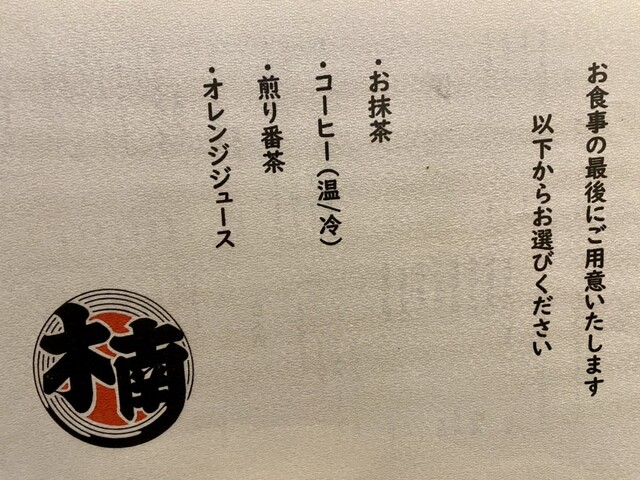 お食事の最後にご用意いたします
以下からお選びください
・お抹茶
・コーヒー(温/冷)
・煎り番茶
・オレンジジュース
楠